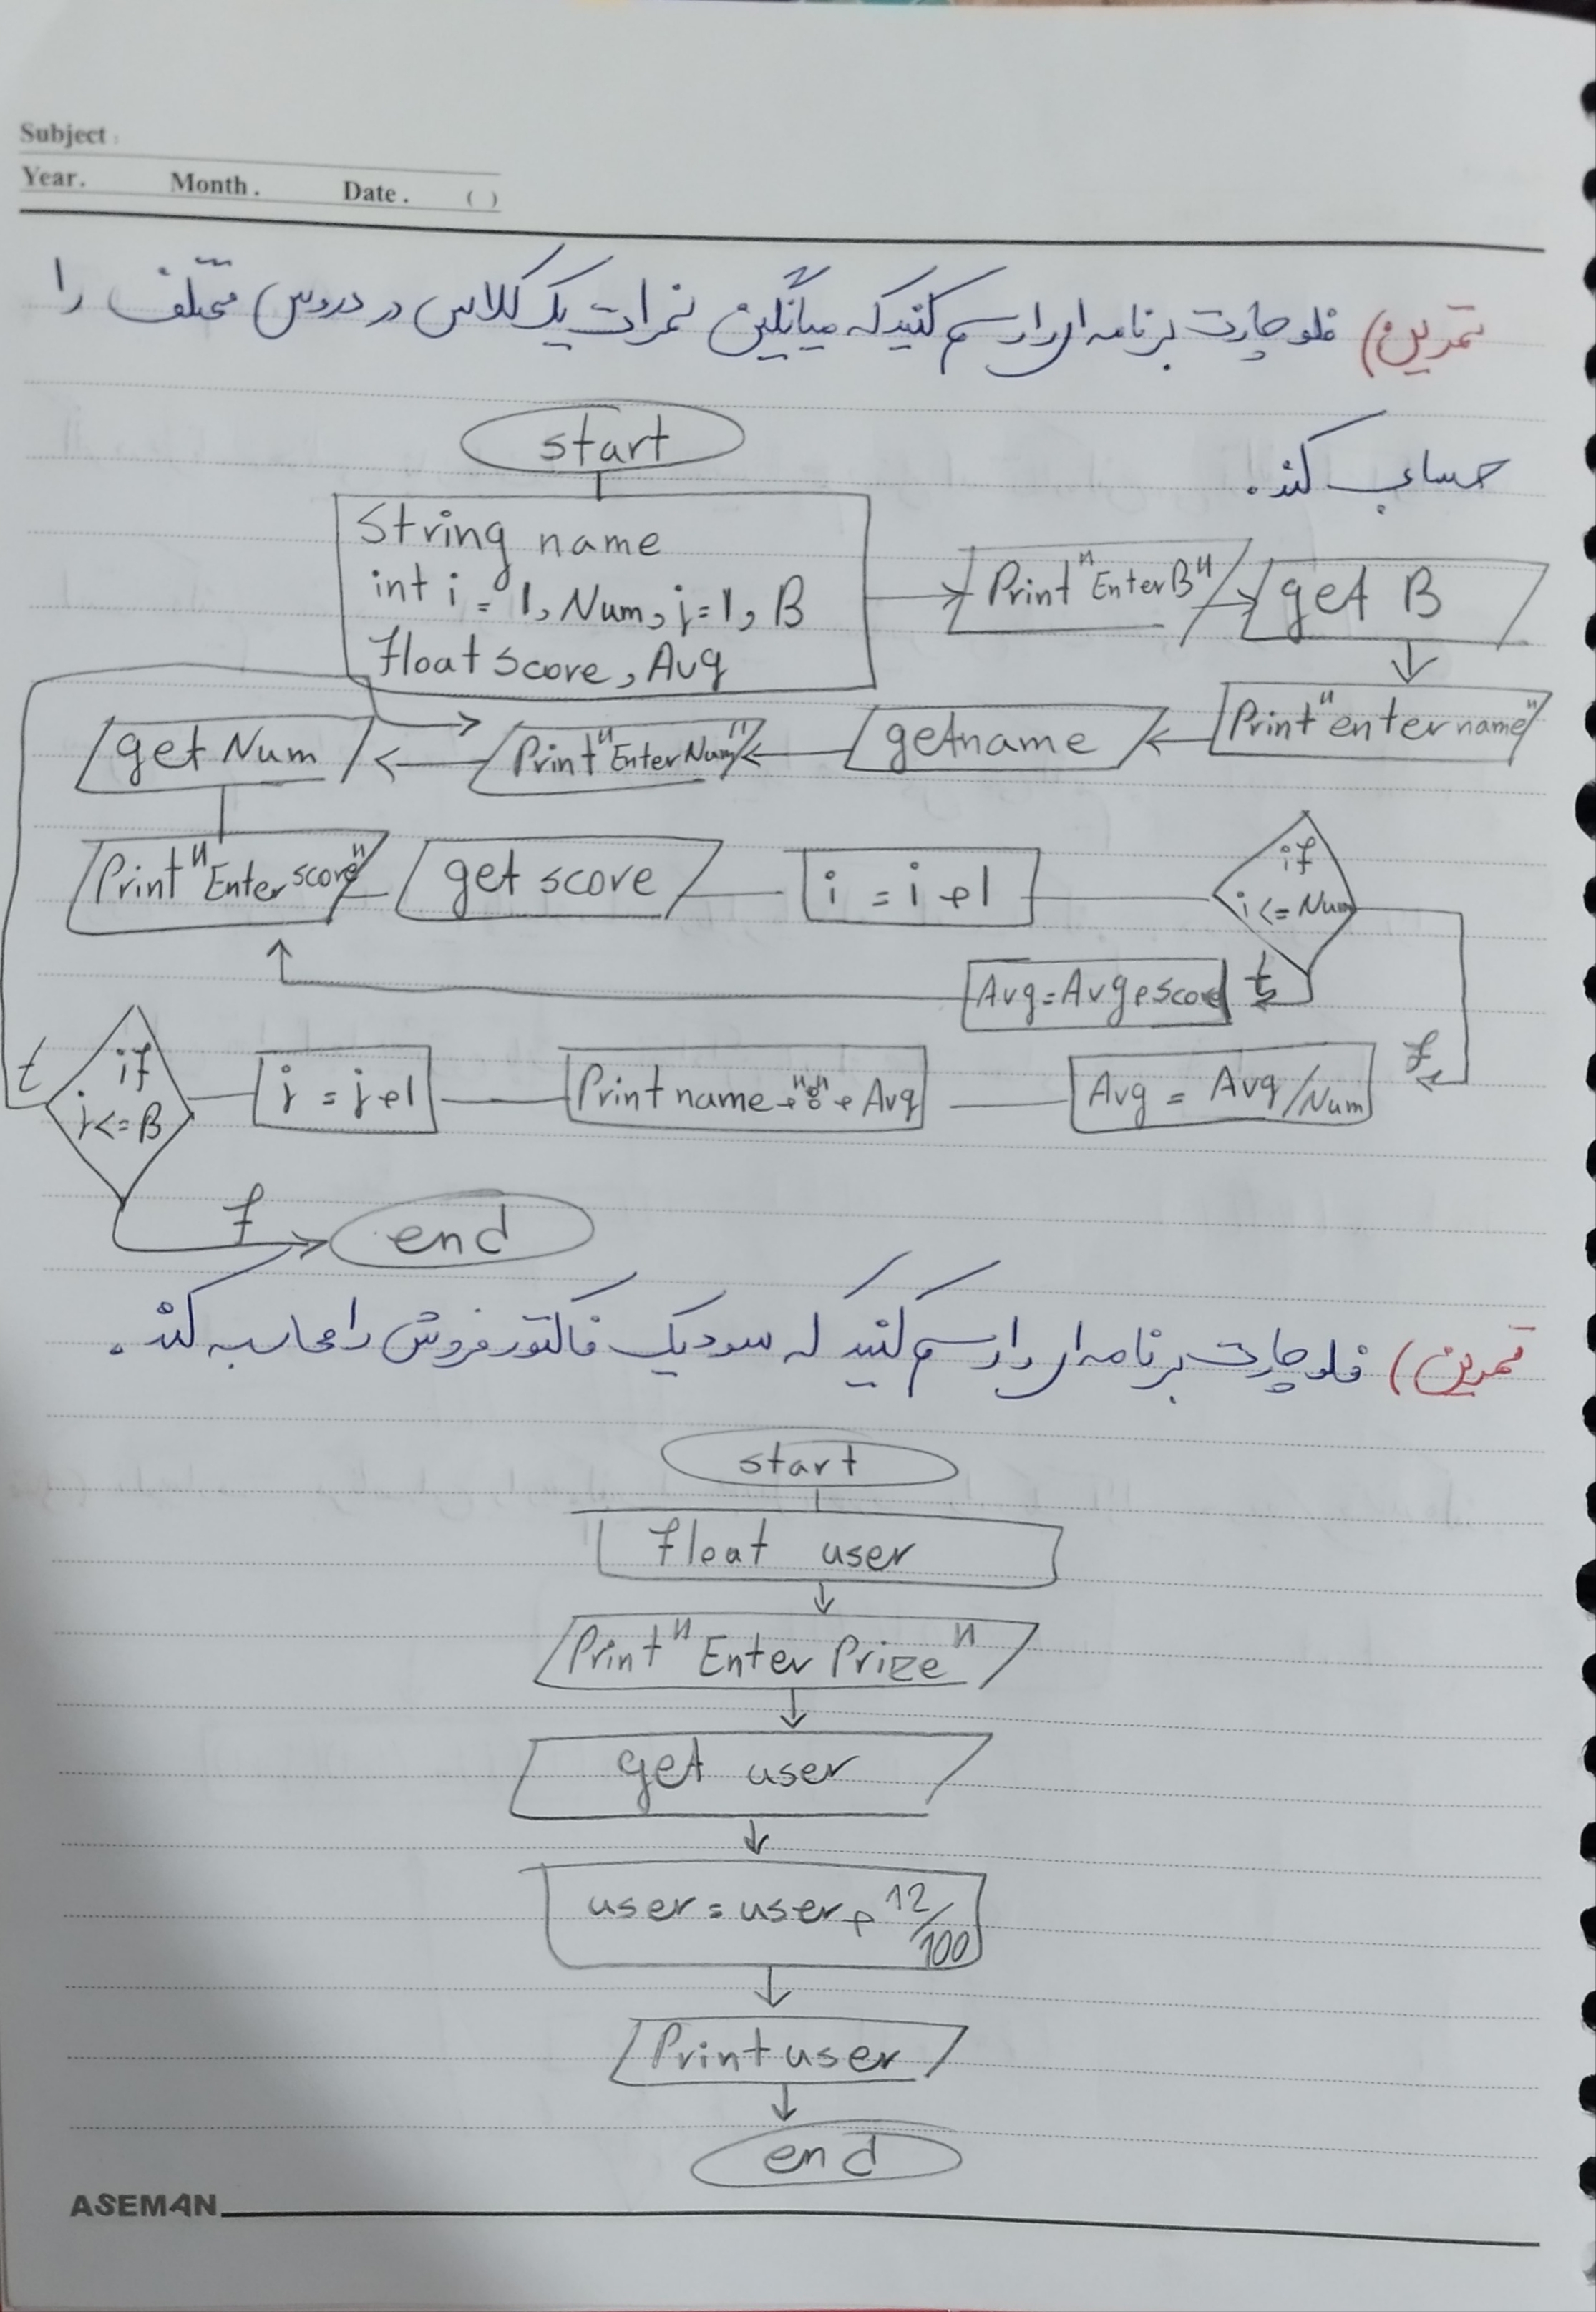 Subject :
Year. Month. Date. ( )
تمرین) فلوچارت برنامه ای را رسم کنید که میانگین نمرات یک کلاس در دروس مختلف را
حساب کند.
start
String name
int i = 1, Num, j=1, B
Float score, Avg
Print "Enter B"
get B
Print "enter name"
get name
Print "Enter Num"
get Num
Print "Enter score"
get score
i = i + 1
if
i <= Num
t
Avg = Avg + score
f
Avg = Avg / Num
Print name + ":" + Avg
j = j + 1
if
j <= B
t
f
end
تمرین) فلوچارت برنامه ای را رسم کنید که سود یک فاکتور فروش را محاسبه کند.
start
float user
Print "Enter Prize"
get user
user = user + 12/100
Print user
end
ASEMAN